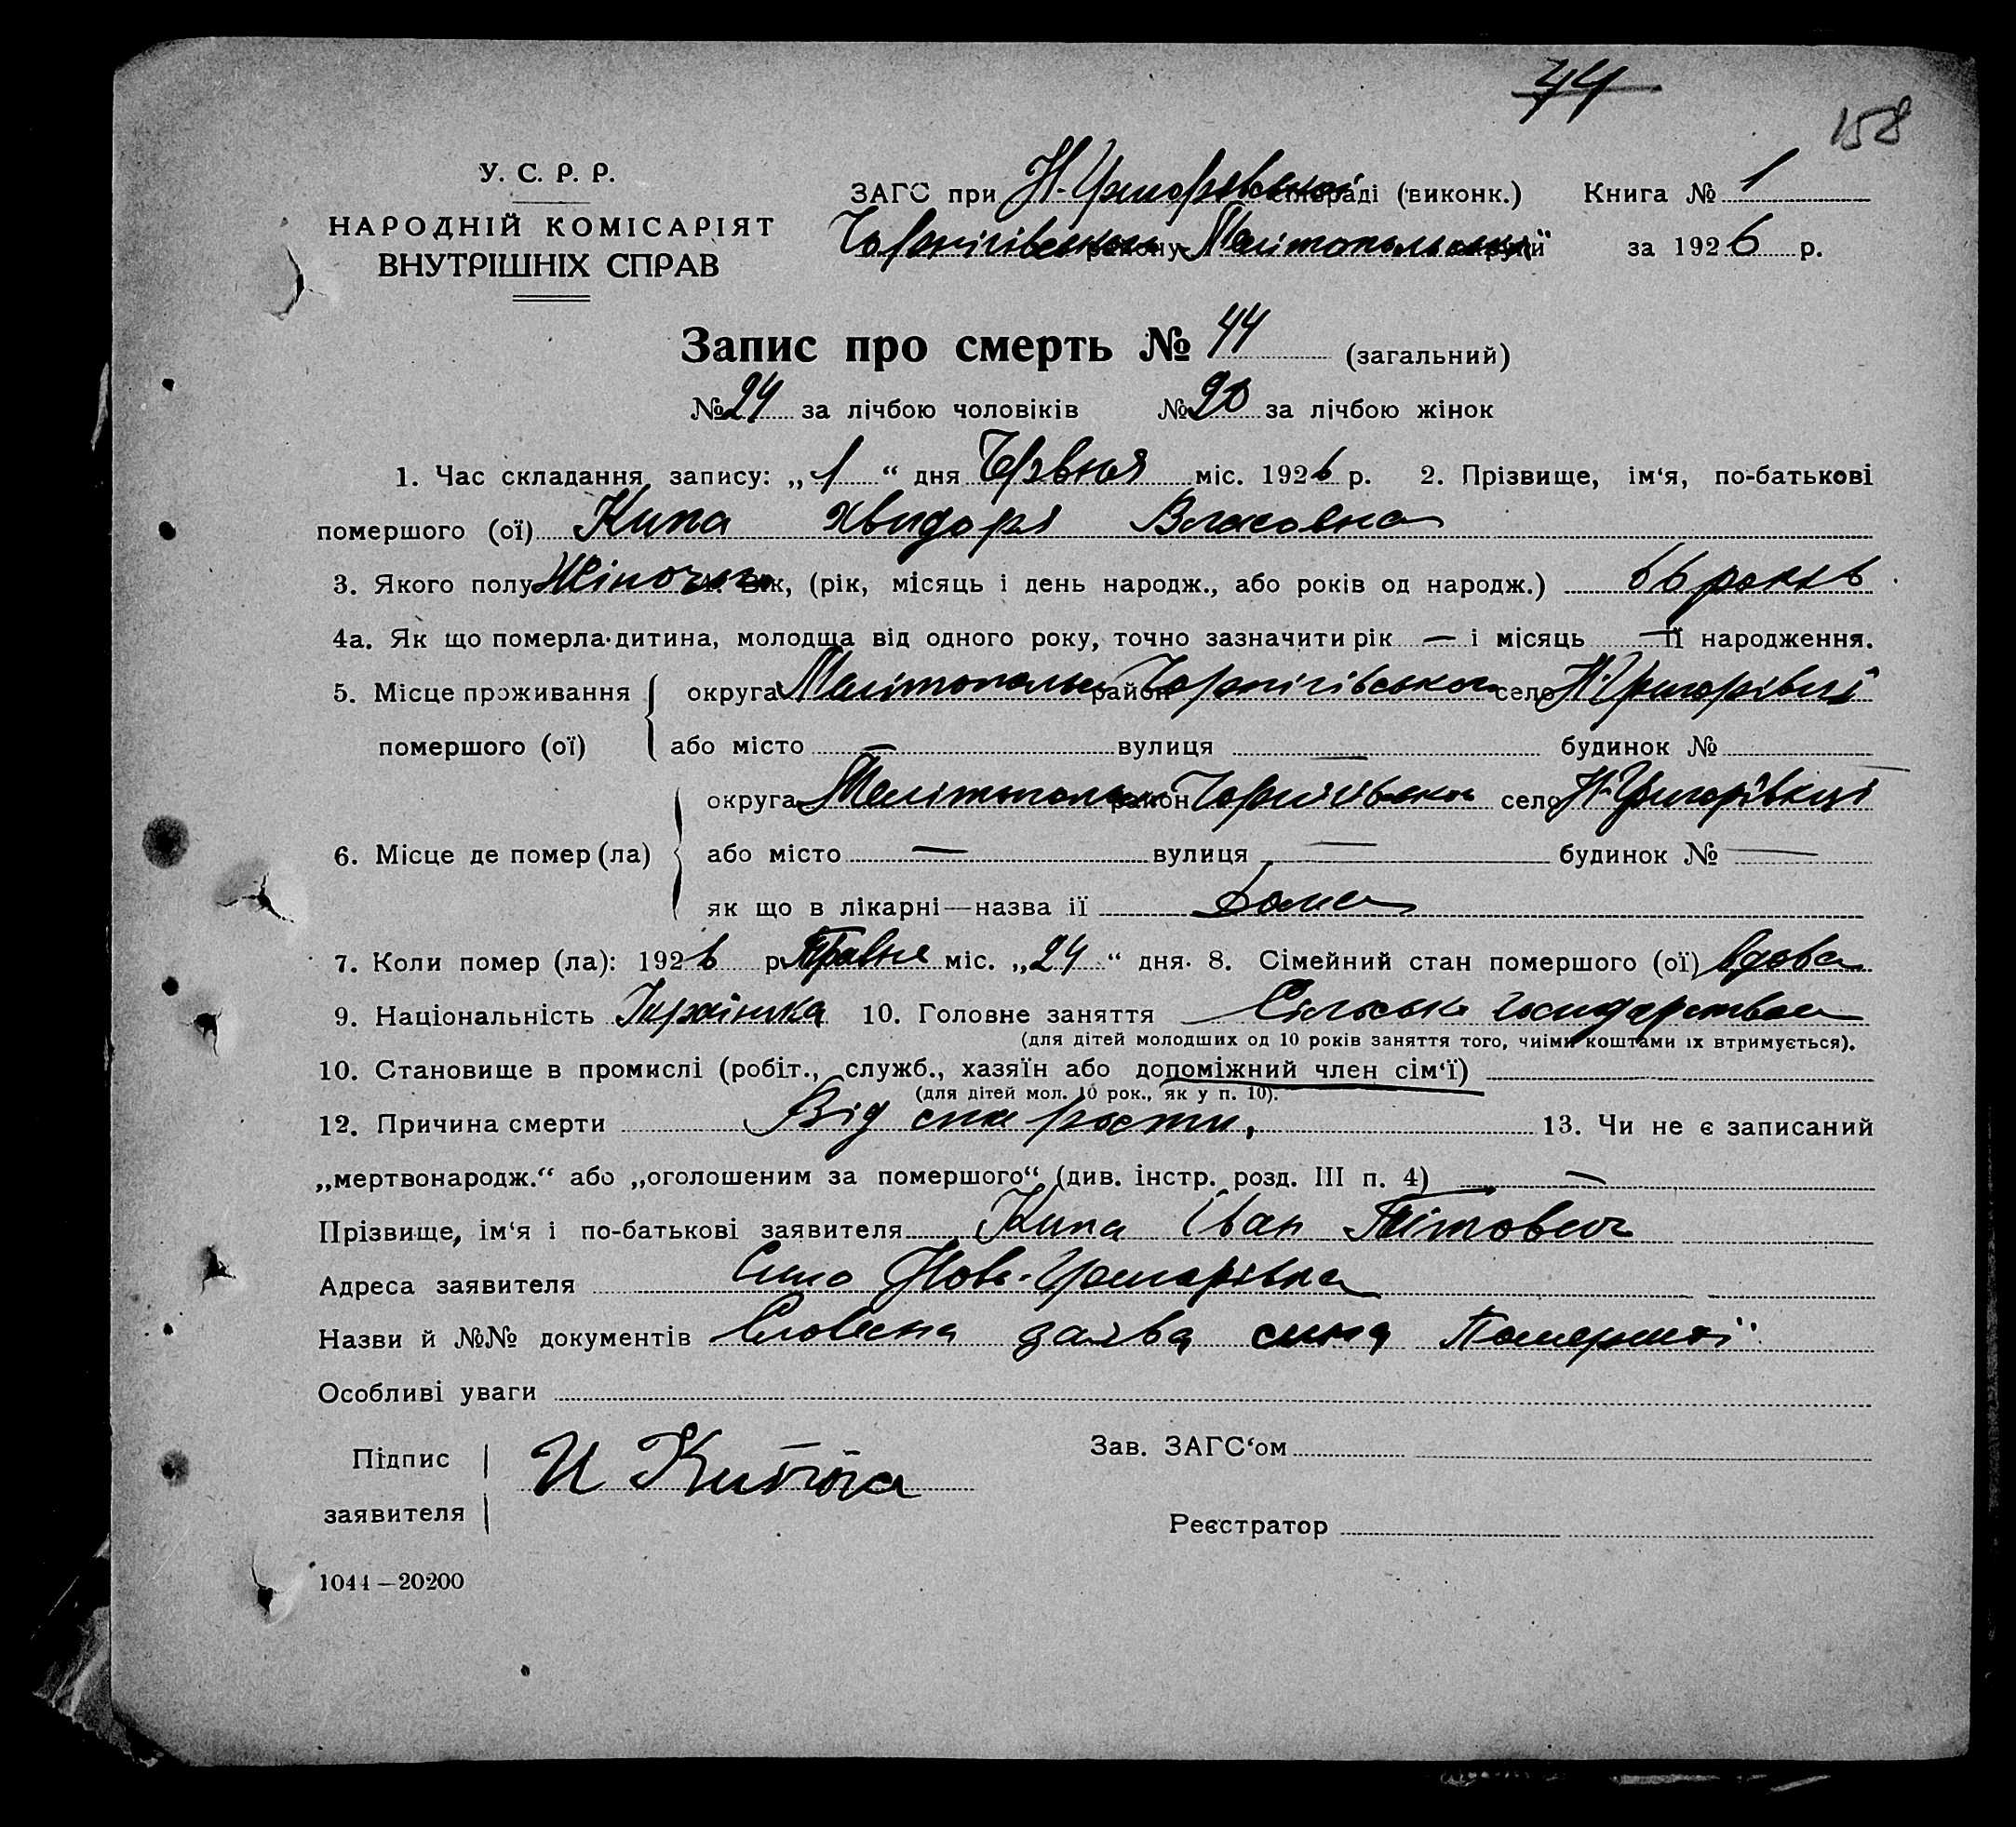 44
158
У. С. Р. Р.
НАРОДНІЙ КОМІСАРІЯТ
ВНУТРІШНІХ СПРАВ
ЗАГС при Н-Григорівській сільраді (виконк.) Книга № 1
Чернігівського району Мелітопольської округи за 1926 р.
Запис про смерть № 44 (загальний)
№ 24 за лічбою чоловіків № 20 за лічбою жінок
1. Час складання запису: „1“ дня Червня міс. 1926 р. 2. Прізвище, ім‘я, по-батькові
помершого (ої) Кипа Хвидоря Власовна
3. Якого полу Жіночого 4. Вік, (рік, місяць і день народж., або років од народж.) 66 років
4а. Як що померла дитина, молодша від одного року, точно зазначити рік — і місяць — її народження.
5. Місце проживання округа Мелітопольс район Чернігівського село Н-Григорівці
помершого (ої) або місто — вулиця — будинок № —
округа Мелітопольс район Чернігівского село Н-Григорівкці
6. Місце де помер (ла) або місто — вулиця — будинок № —
як що в лікарні—назва ії Дома
7. Коли помер (ла): 1926 р. Травня міс. „24“ дня. 8. Сімейний стан помершого (ої) вдова
9. Національність 10. Головне заняття Сільське господарство
(для дітей молодших од 10 років заняття того, чиіми коштами іх втримується).
10. Становище в промислі (робіт., служб., хазяїн або допоміжний член сім‘ї)
(для дітей мол. 10 рок., як у п. 10).
12. Причина смерти Від старости, 13. Чи не є записаний
„мертвонародж.“ або „оголошеним за помершого“ (див. інстр. розд. III п. 4) —
Прізвище, ім‘я і по-батькові заявителя Кипа Іван Тітович
Адреса заявителя Село Ново-Григорівка
Назви й №№ документів Словесна заява сина Помершої
Особливі уваги
Підпис
заявителя И Кипа
Зав. ЗАГС‘ом
Реєстратор
1044—20200